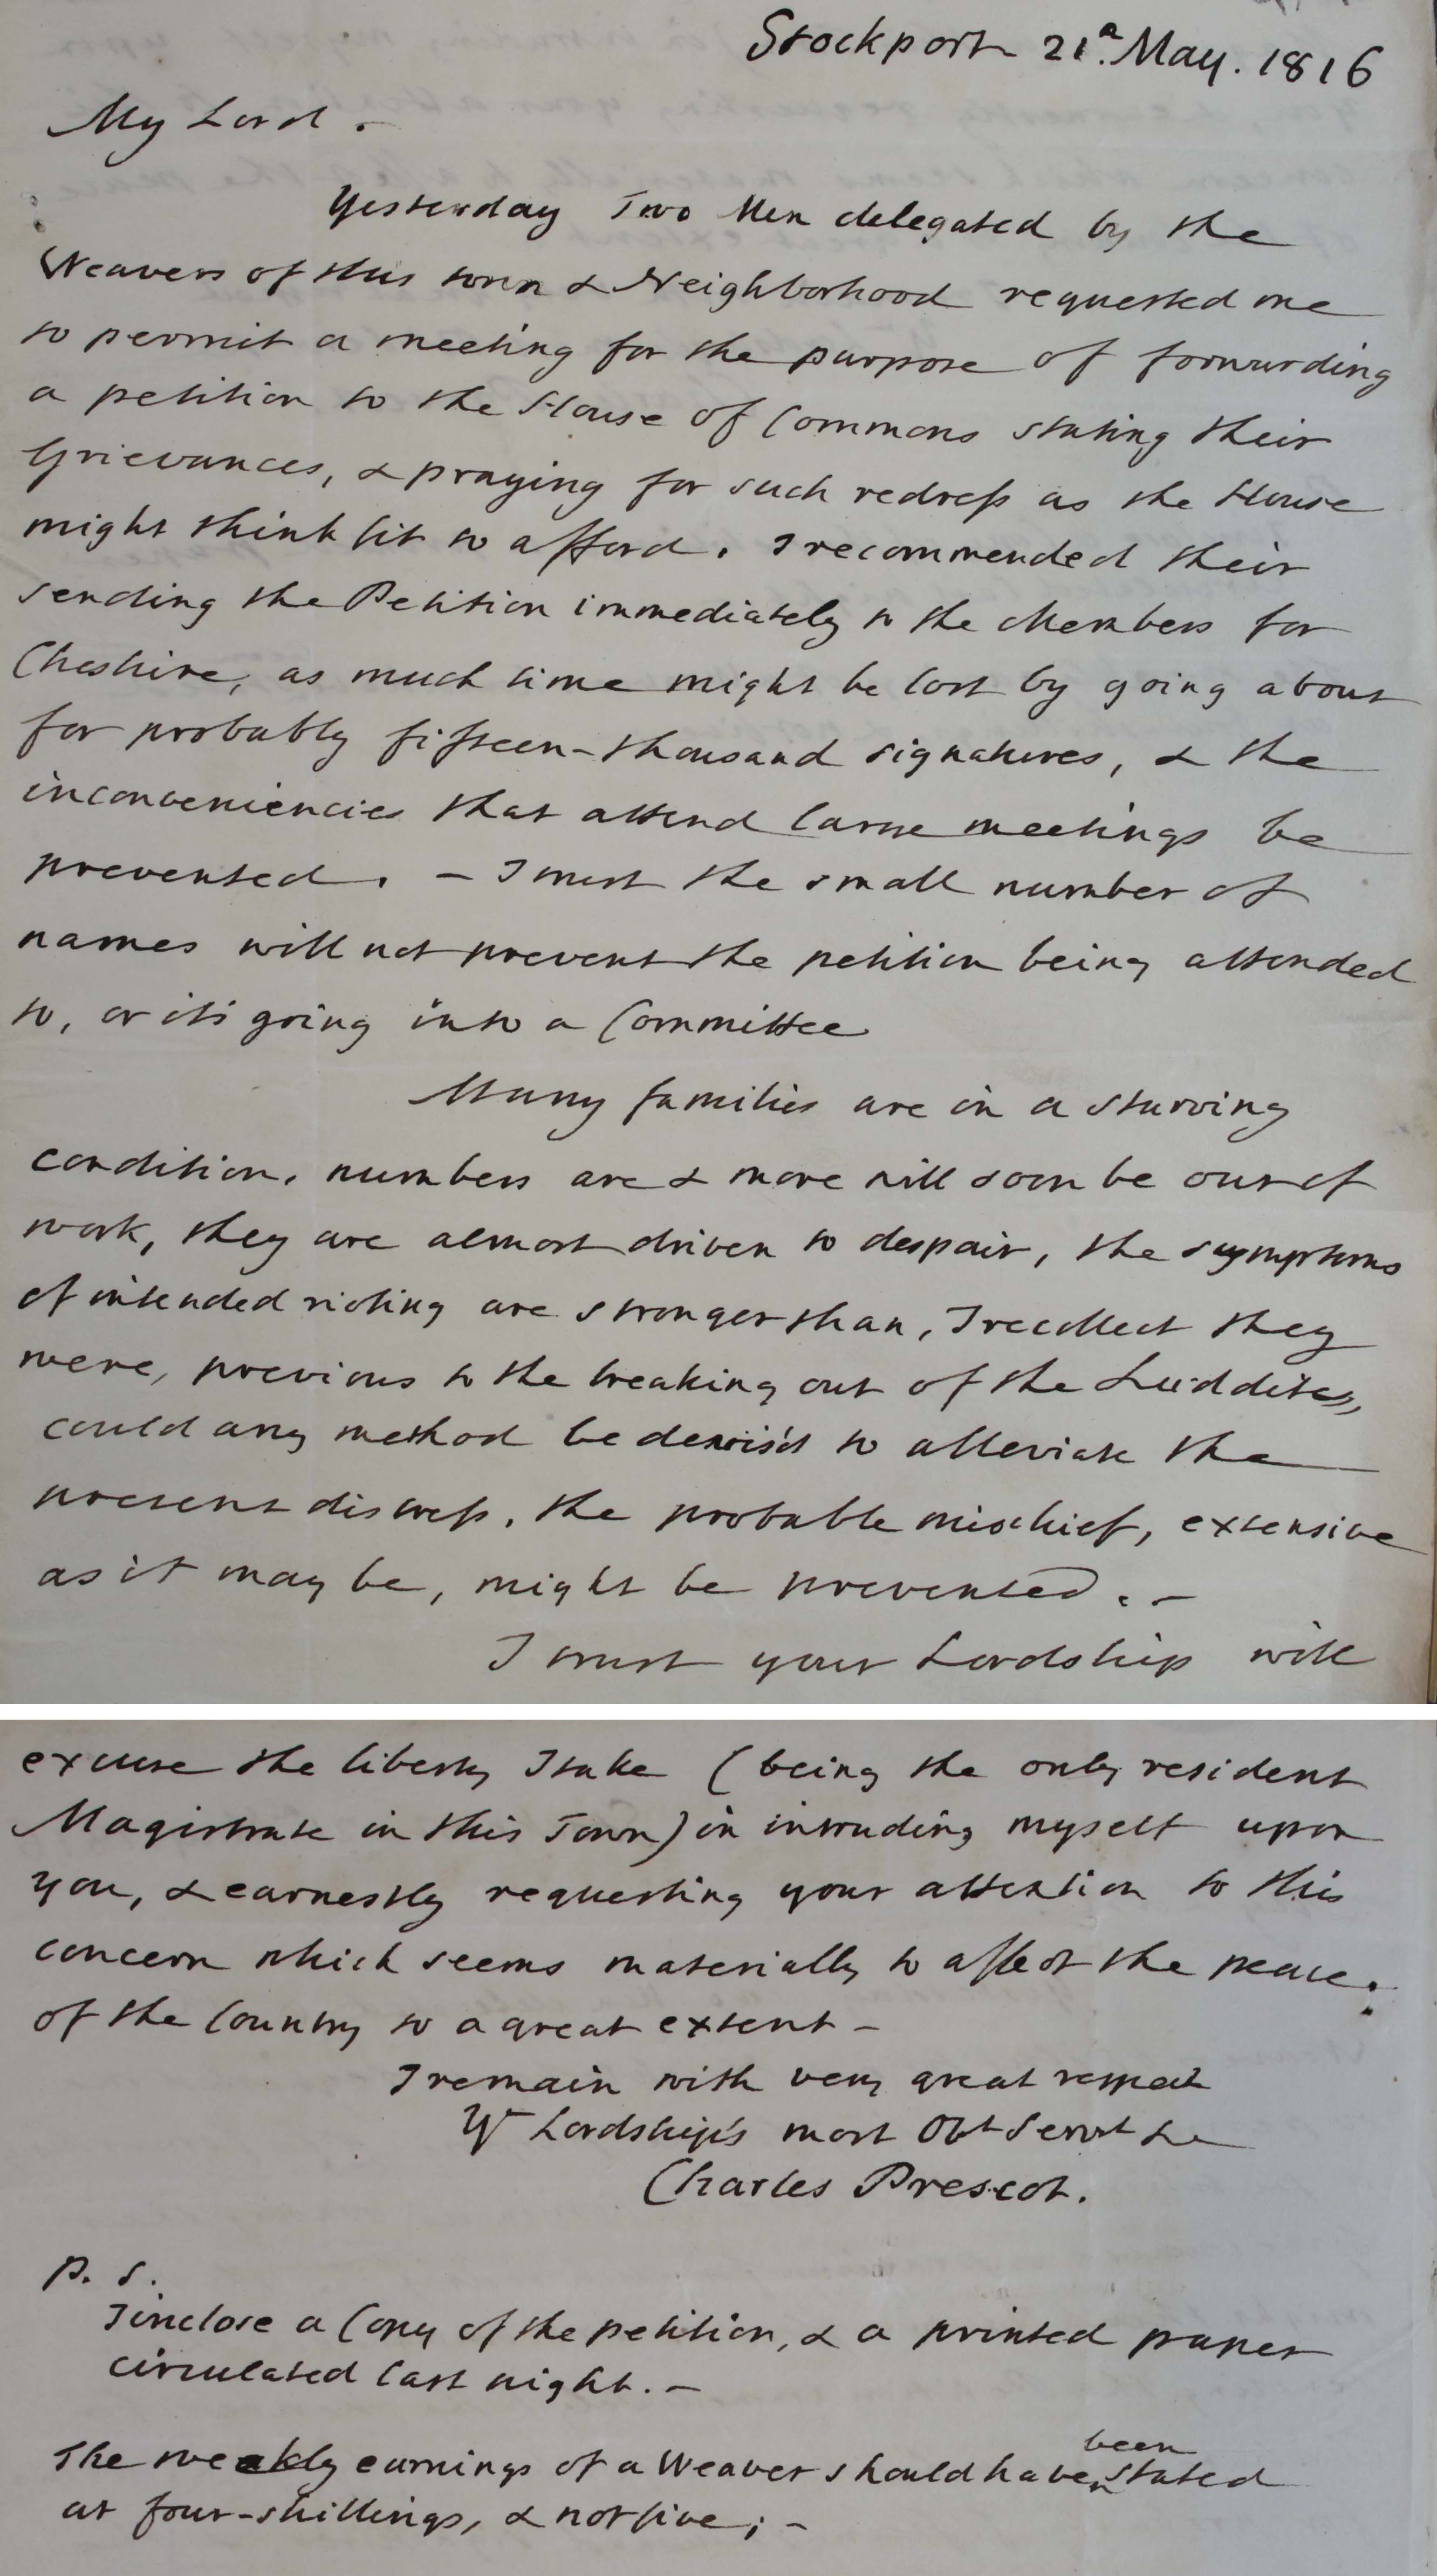 Stockport 21st. May. 1816
My Lord.
Yesterday Two Men delegated by the
Weavers of this town & Neighborhood requested me
to permit a meeting for the purpose of forwarding
a petition to the House of Commons stating their
Grievances, & praying for such redress as the House
might think fit to afford. I recommended their
sending the Petition immediately to the Members for
Cheshire, as much time might be lost by going about
for probably fifteen-thousand signatures, & the
inconveniencies that attend large meetings be
prevented. – I trust the small number of
names will not prevent the petition being attended
to, or it's going into a Committee
Many families are in a starving
condition, numbers are & more will soon be out of
work, they are almost driven to despair, the symptoms
of intended rioting are stronger than, I recollect they
were, previous to the breaking out of the Luddites,
could any method be devis'd to alleviate the
present distress, the probable mischief, extensive
as it may be, might be prevented. –
I trust your Lordship will
excuse the liberty I take (being the only resident
Magistrate in this Town) in intruding myself upon
you, & earnestly requesting your attention to this
concern which seems materially to affect the peace
of the Country to a great extent –
I remain with very great respect
Yr Lordship's most Obt Servt &c
Charles Prescot.
P. S.
I inclose a Copy of the petition, & a printed paper
circulated last night. –
The weekly earnings of a Weaver should have been stated
at four-shillings, & not five; –